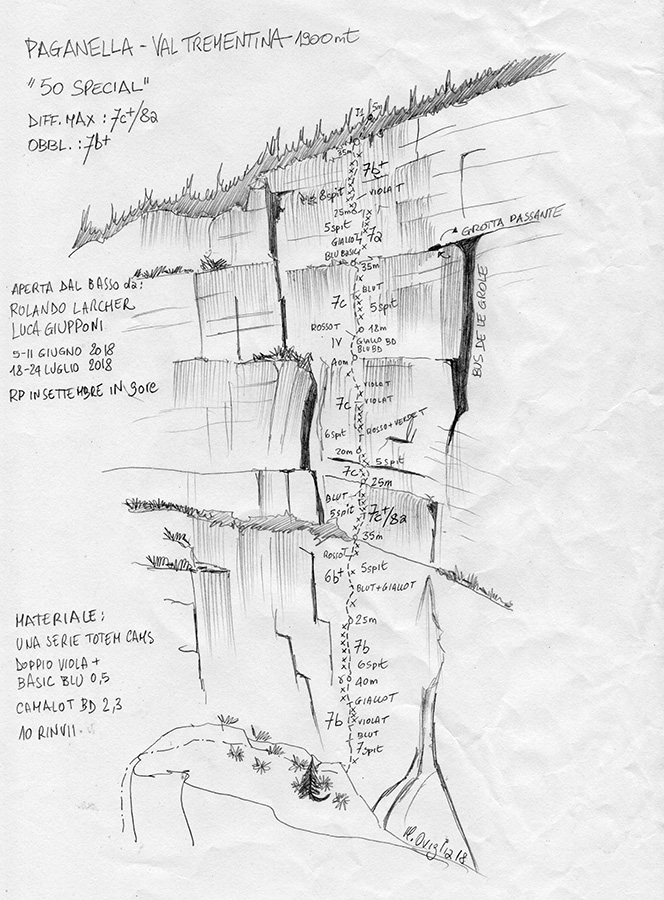 PAGANELLA - VAL TREMENTINA - 1900mt
"50 SPECIAL"
DIFF. MAX : 7c+/8a
OBBL. : 7b+
APERTA DAL BASSO da:
ROLANDO LARCHER
LUCA GIUPPONI
5-11 GIUGNO 2018
18-24 LUGLIO 2018
RP IN SETTEMBRE IN 9ore
MATERIALE:
UNA SERIE TOTEM CAMS
DOPPIO VIOLA +
BASIC BLU 0,5
CAMALOT BD 2,3
10 RINVII
5m
35m
7b+
8spit
VIOLA T
25m
5spit
GIALLO T
7a
BLU BASIC
GROTTA PASSANTE
BUS DE LE GROLE
35m
BLU T
7c
5spit
ROSSO T
18m
IV
GIALLO BD
BLU BD
40m
VIOLA T
7c
VIOLA T
6spit
ROSSO + VERDE T
20m
5spit
7c
25m
BLU T
5spit
7c+/8a
35m
ROSSO T
6b+
5spit
BLU T + GIALLO T
25m
7b
6spit
40m
GIALLO T
7b
VIOLA T
BLU T
7spit
M. Oviglia 18